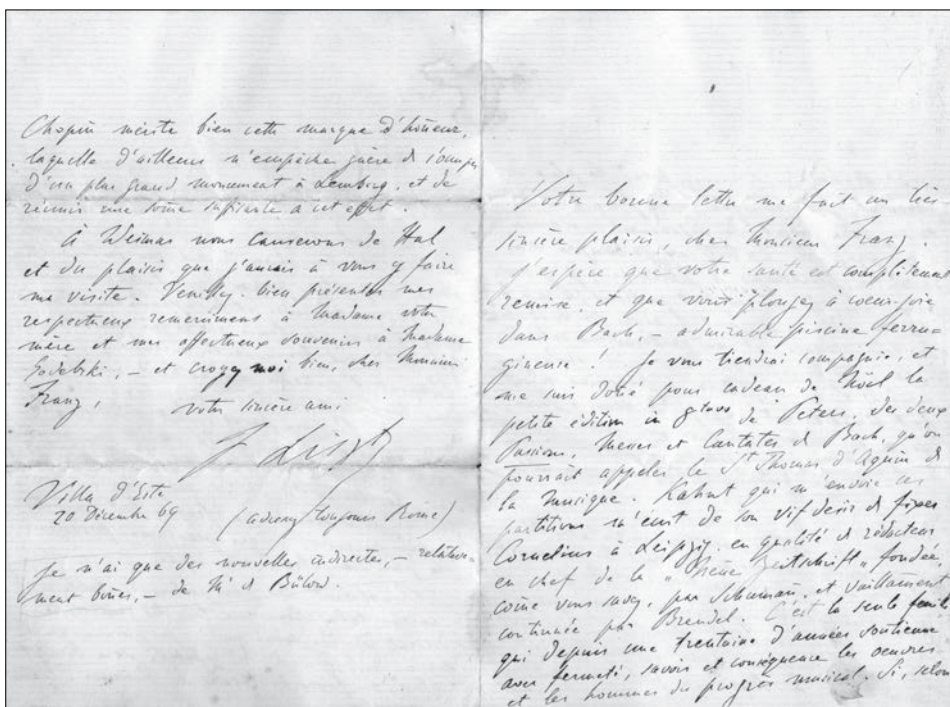 Chopin mérite bien cette marque d'hôneur,
laquelle d'ailleurs n'empêche guère de s'occuper
d'un plus grand monument à Lemberg, et de
réunir une sôme suffisante à cet effet.
À Weimar nous causerons de Hal
et du plaisir que j'aurais à vous y faire
ma visite. Veuillez bien présenter mes
respectueux remercimens à Madame votre
mère et mes affectueux souvenirs à Madame
Godebski, – et croyez moi bien, cher Monsieur
Franz,
votre sincère ami
F. Liszt
Villa d'Este
20 Décembre 69
(adressez toujours Rome)
Je n'ai que des nouvelles indirectes, – relative-
ment bônes, – de Mr de Bülow.
Votre bonne lettre me fait un très
sincère plaisir, cher Monsieur Franz.
J'espère que votre santé est complètement
remise, et que vous plongez à coeur-joie
dans Bach, – admirable piscine ferru-
gineuse! Je vous tiendrai compagnie, et
me suis doté pour cadeau de Nöel la
petite édition in 8tavo de Peters, des deux
Passions, Messes et Cantates de Bach, qu'on
pourrait appeler le St Thomas d'Aquin de
la musique. Kahnt qui m'envoie ces
partitions m'écrit de son vif désir de fixer
Cornelius à Leipzig, en qualité de rédacteur
en chef de la „Neue Zeitschrift„ fondée,
côme vous savez, par Schumañ, et vaillamment
continuée par Brendel. C'est la seule feuille
qui depuis une trentaine d'années soutienne
avec fermeté, savoir et conséquence les oeuvres
et les hommes du progrès musical. Si, selon